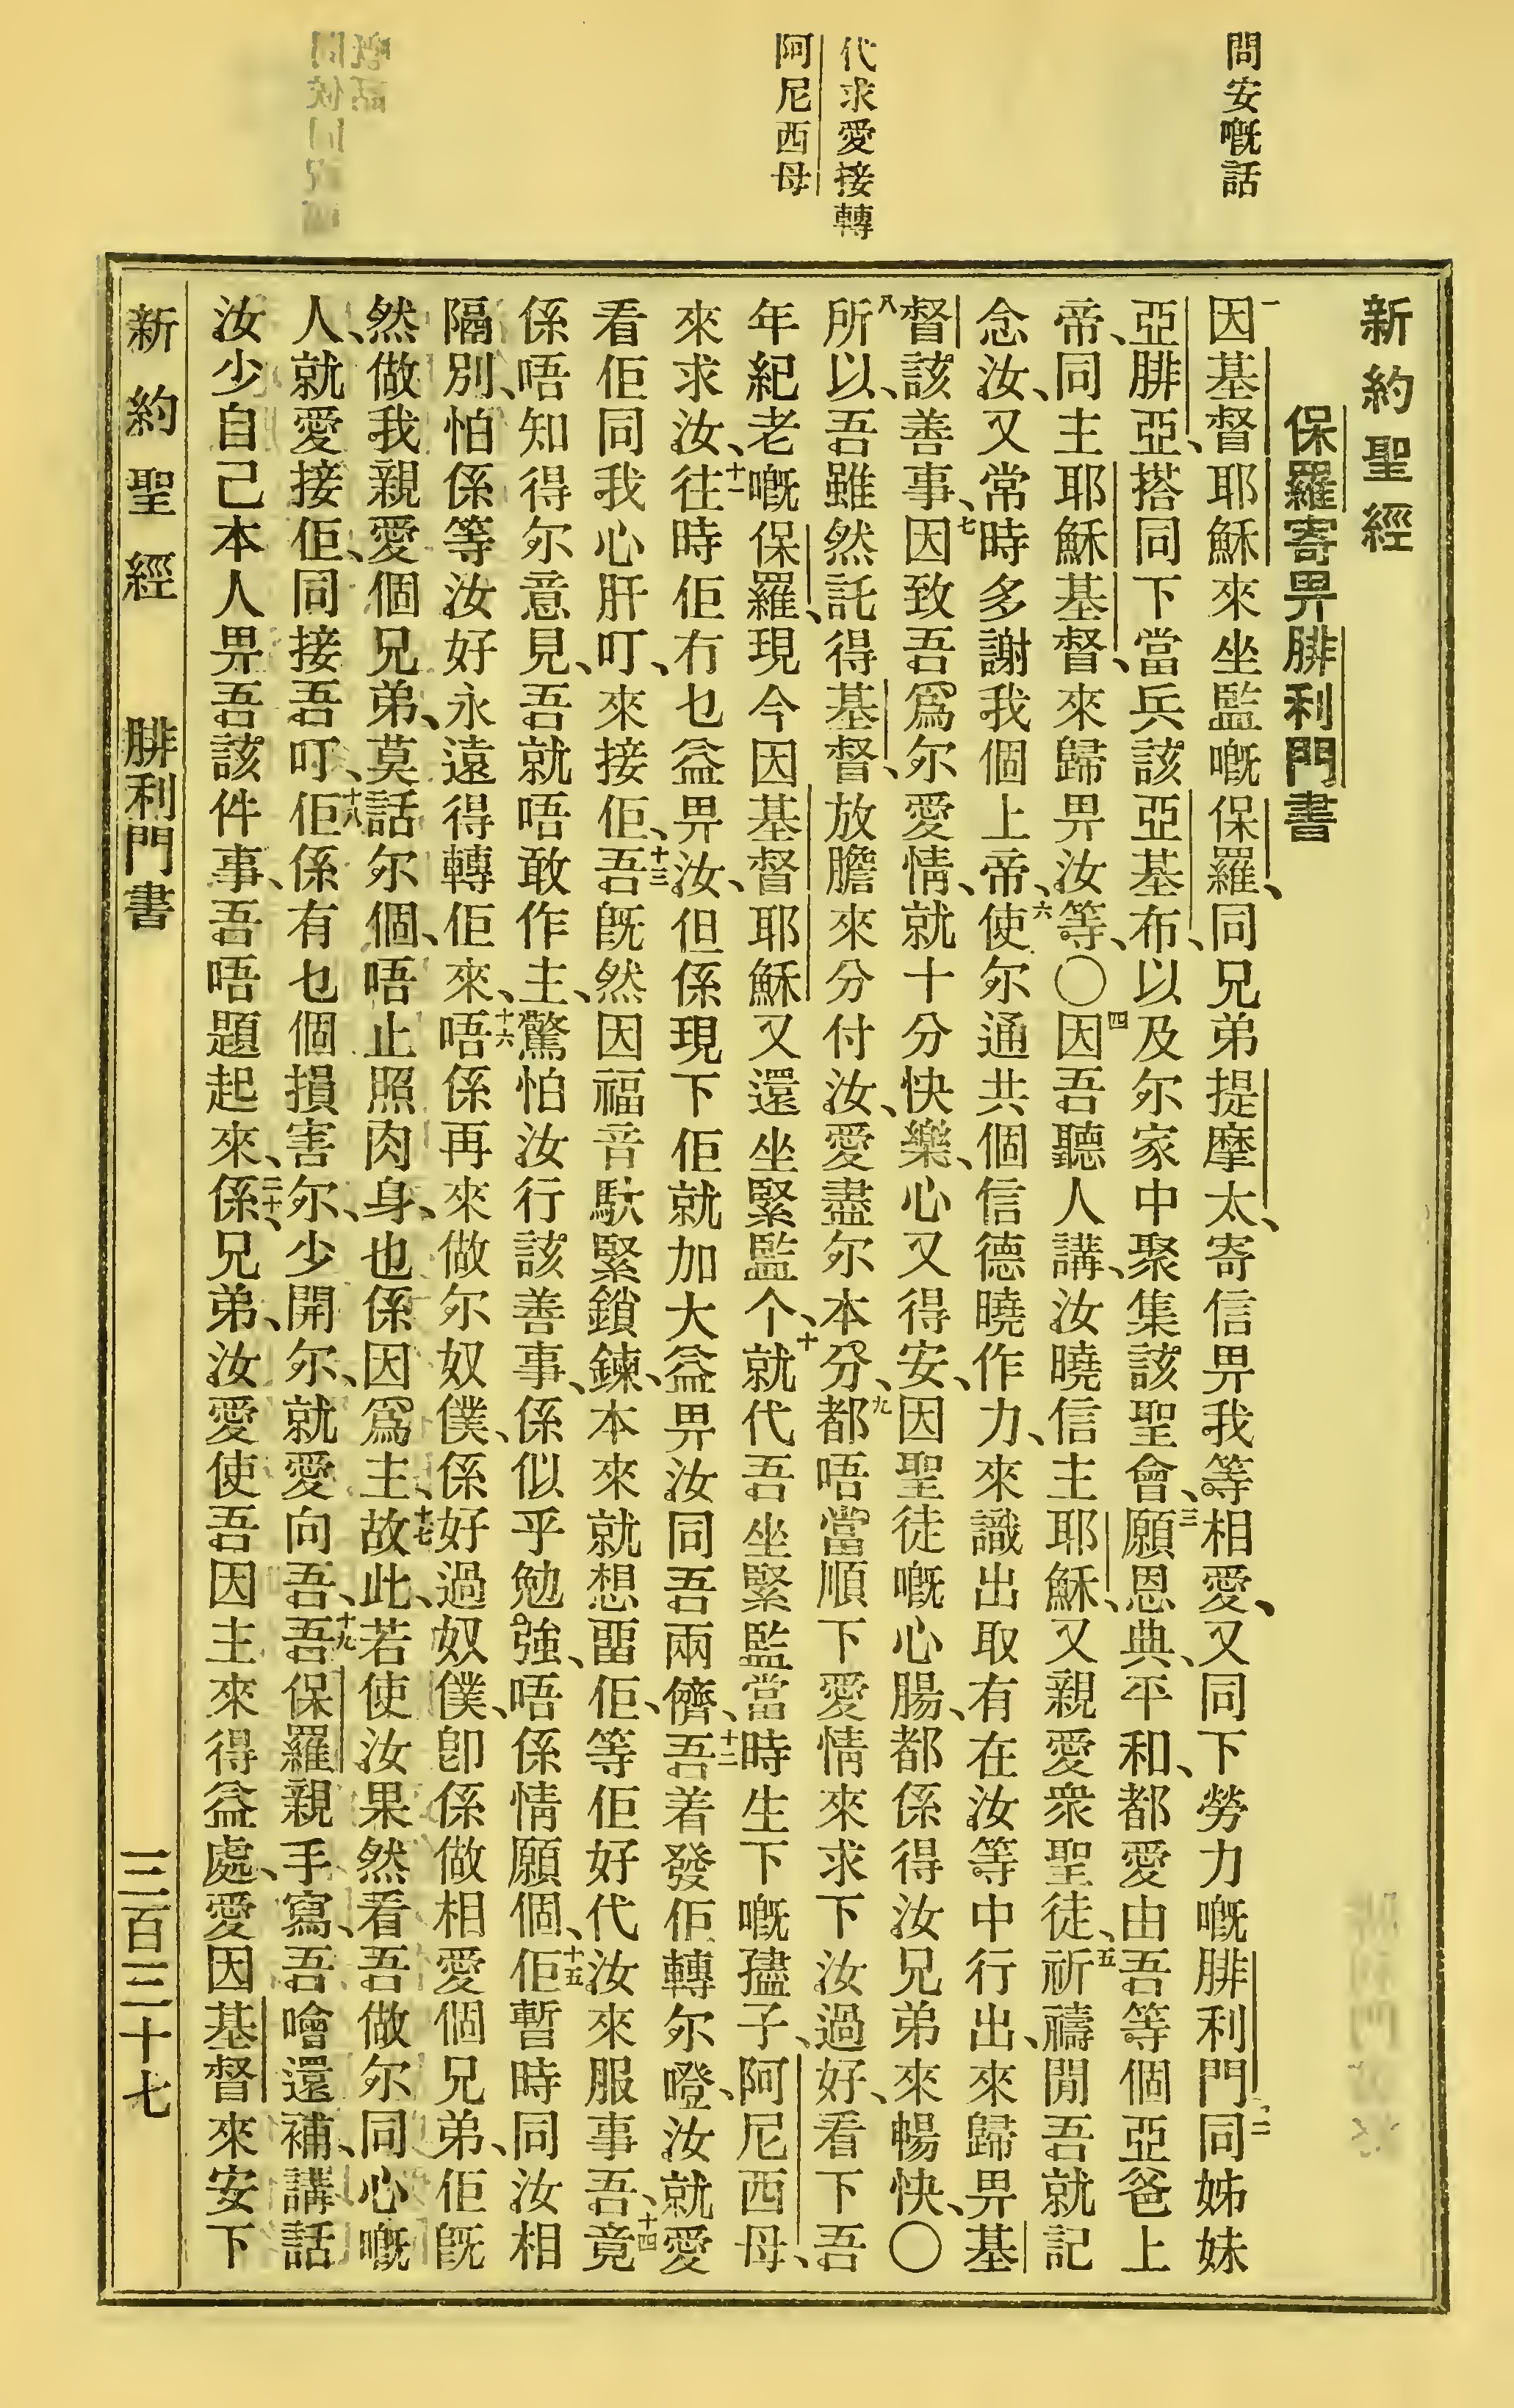 問安嘅話
代求愛接轉
阿尼西母
新約聖經
保羅寄畀腓利門書
一因基督耶穌來坐監嘅保羅、同兄弟提摩太、寄信畀我等相愛、又同下勞力嘅腓利門、二同姊妹
亞腓亞、搭同下當兵該亞基布、以及尔家中聚集該聖會、三願恩典、平和、都愛由吾等個亞爸上
帝、同主耶穌基督、來歸畀汝等、〇四因吾聽人講、汝曉信主耶穌、又親愛衆聖徒、五祈禱閒吾就記
念汝、又常時多謝我個上帝、六使尔通共個信德曉作力、來識出取有在汝等中行出、來歸畀基
督該善事、七因致吾爲尔愛情、就十分快樂、心又得安、因聖徒嘅心腸、都係得汝兄弟來暢快、〇
八所以、吾雖然託得基督、放膽來分付汝、愛盡尔本分、九都唔當順下愛情來求下汝過好、看下吾
年紀老嘅保羅、現今因基督耶穌又還坐緊監个、十就代吾坐緊監當時生下嘅𡥧子、阿尼西母、
來求汝、十一往時佢冇乜益畀汝、但係現下佢就加大益畀汝同吾兩儕、十二吾着發佢轉尔嶝、汝就愛
看佢同我心肝叮、來接佢、十三吾旣然因福音馱緊鎖鍊、本來就想畱佢、等佢好代汝來服事吾、十四竟
係唔知得尔意見、吾就唔敢作主、驚怕汝行該善事、係似乎勉強、唔係情願個、十五佢暫時同汝相
隔別、怕係等汝好永遠得轉佢來、十六唔係再來做尔奴僕、係好過奴僕、卽係做相愛個兄弟、佢旣
然做我親愛個兄弟、莫話尔個、唔止照肉身、也係因爲主、十七故此、若使汝果然看吾做尔同心嘅
人、就愛接佢、同接吾叮、十八佢係有乜個損害尔、少開尔、就愛向吾、十九吾保羅親手寫、吾噲還補、講話
汝少自己本人畀吾該件事、吾唔題起來、二十係、兄弟、汝愛使吾因主來得益處、愛因基督來安下
新約聖經
腓利門書
三百三十七